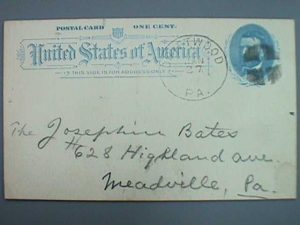 POSTAL CARD ONE CENT.
United States of America
THIS SIDE IS FOR ADDRESS ONLY
WOOD
27
PA.
The Josephine Bates
#628 Highland ave.
Meadville, Pa.